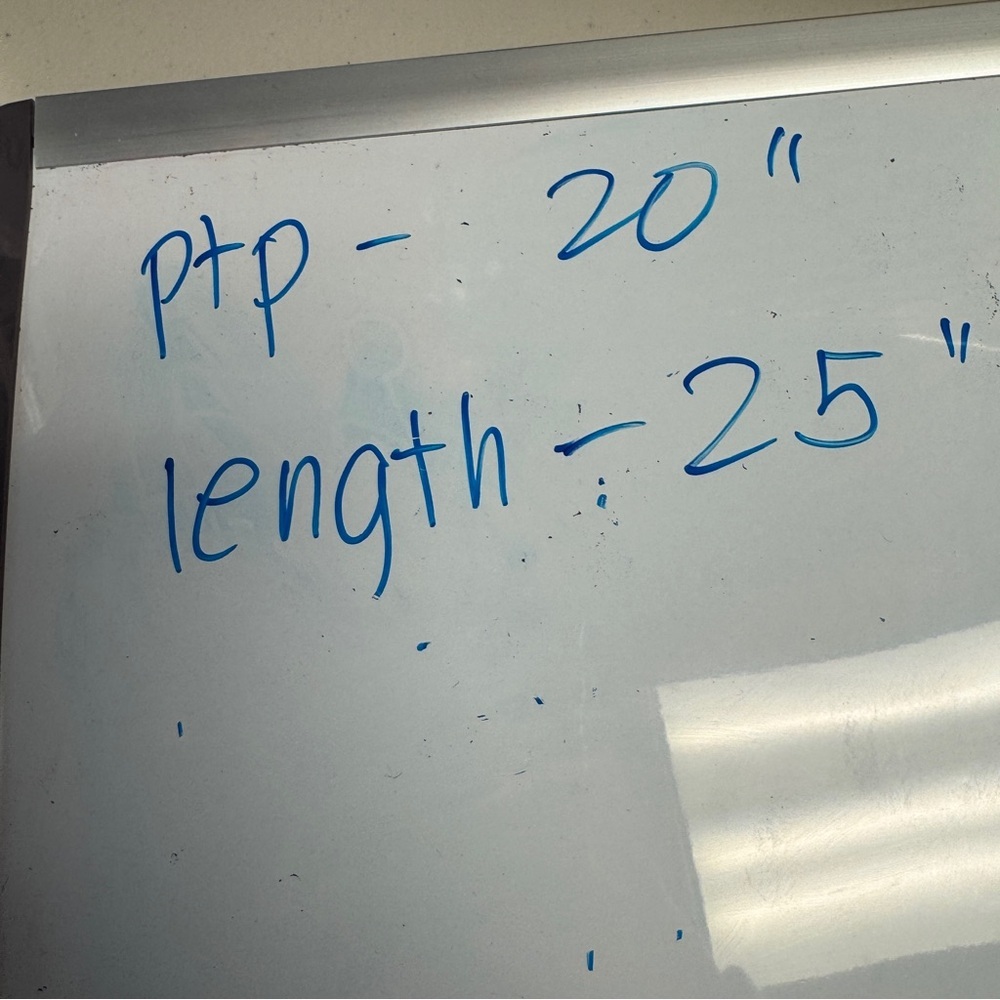 ptp - 20"
length - 25"